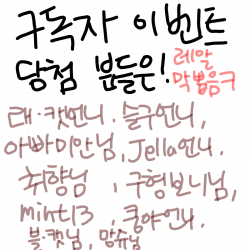 구독자 이벤트
당첨 분들은!
레알
막뽑음ㅋ
래·캣언니. 슬구언니,
아빠미안님, Jella언니.
취향님 , 구형보니님,
mint13 , 쿵야언니.
블·캣님, 망슈님